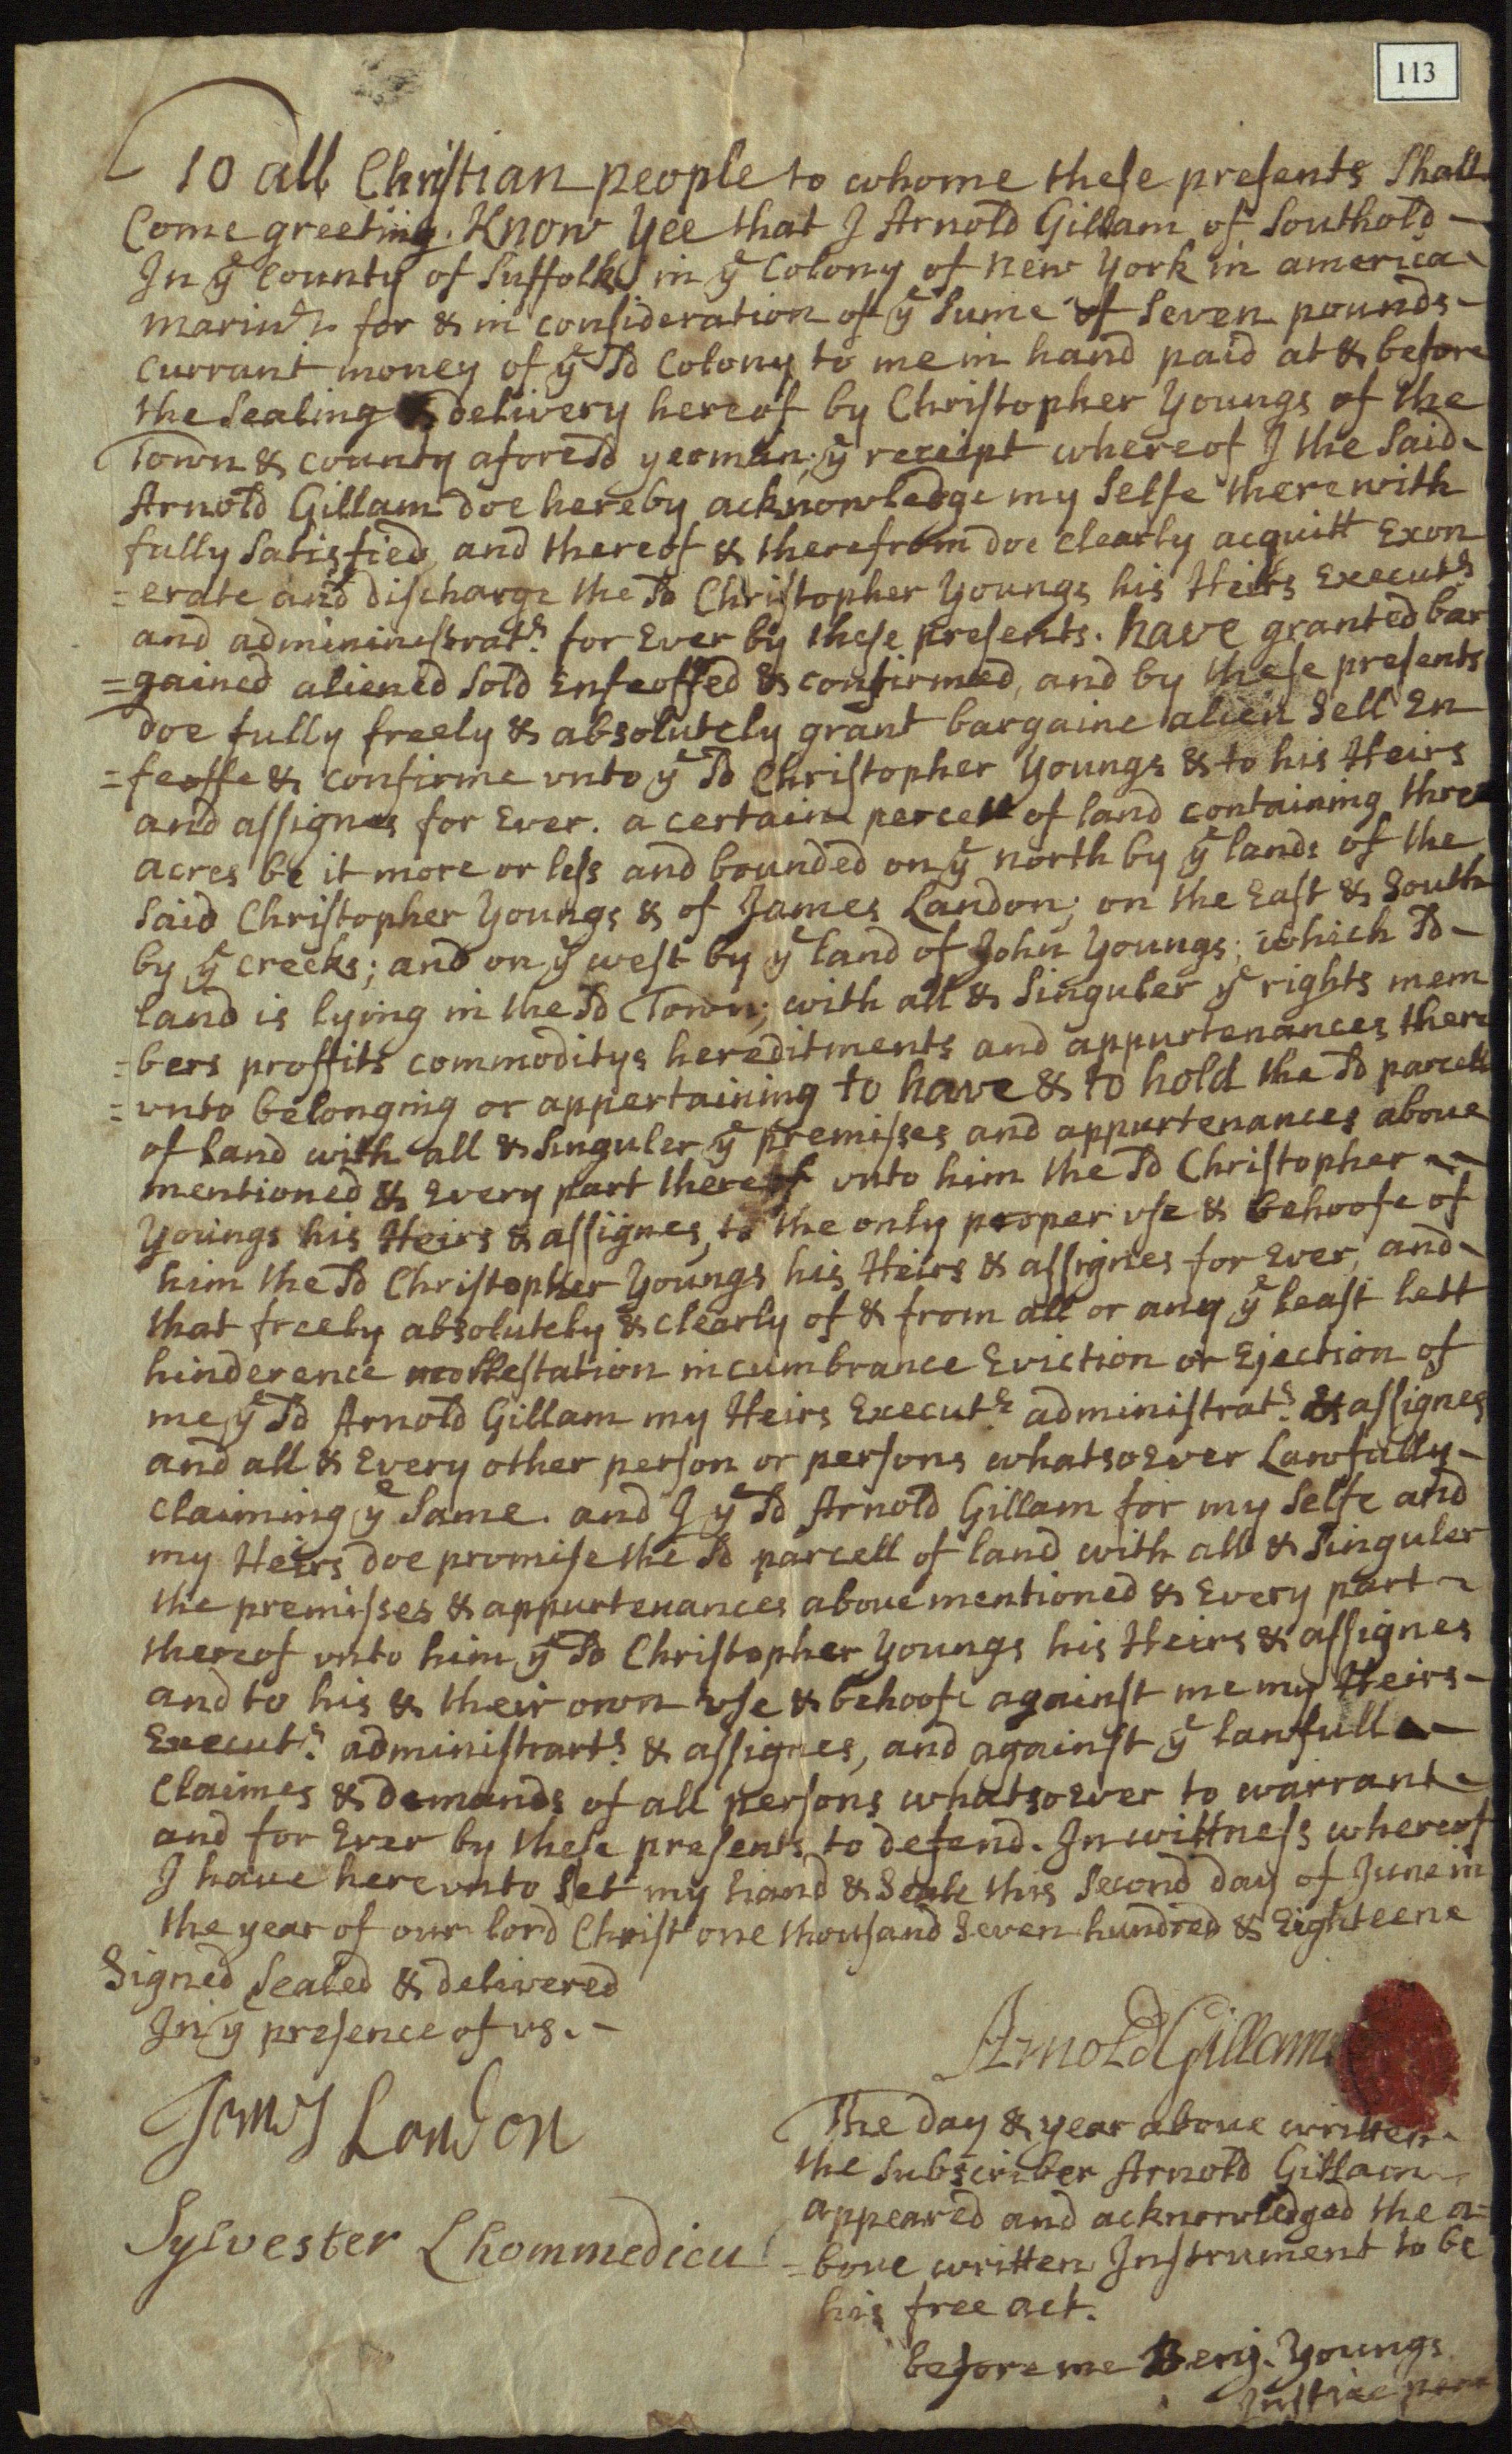 113
To all Christian people to whome these presents Shall
Come greeting. Know Yee that I Arnold Gillam of Southold
In ye County of Suffolk in ye Colony of New York in america
marinr. for & in consideration of ye Sume of Seven pounds
currant money of ye Sd Colony to me in hand paid at & before
the Sealing & delivery hereof by Christopher Youngs of the
Town & county aforeSd yeoman; ye receipt whereof I the Said
Arnold Gillam doe hereby acknowledge my Selfe therewith
fully Satisfied, and thereof & therefrom doe clearly acquitt Exon
=erate and discharge the Sd Christopher Youngs his Heirs Executrs
and admininistratrs. for Ever by these presents. have granted bar
=gained aliened Sold Enfeoffed & confirmed, and by these presents
doe fully freely & absolutely grant bargaine alien Sell En
=feoffe & confirme vnto ye Sd Christopher Youngs & to his Heirs
and assignes for Ever. a certain percell of land containing three
acres be it more or less and bounded on ye north by ye lands of the
Said Christopher Youngs & of James Landon; on the East & South
by ye creeks; and on ye west by ye land of John Youngs; which Sd
land is lying in the Sd Town; with all & Singuler ye rights mem
=bers proffits commoditys hereditments and appurtenances there
=vnto belonging or appertaining to have & to hold the Sd parcell
of land with all & Singuler ye premisses and appurtenances aboue
mentioned & Every part thereof vnto him the Sd Christopher
Youngs his Heirs & assignes, to the only proper vse & behoofe of
him the Sd Christopher Youngs his Heirs & assignes for Ever, and
that freely absolutely & clearly of & from all or any ye least lett
hinderence mollestation incumbrance Eviction or Ejection of
me ye Sd Arnold Gillam my Heirs Executrs administratrs. & assignes
and all & Every other person or persons whatsoever Lawfully
claiming ye Same. and I ye Sd Arnold Gillam for my Selfe and
my Heirs doe promise the Sd parcell of land with all & Singuler
the premisses & appurtenances aboue mentioned & Every part
thereof vnto him ye Sd Christopher Youngs his Heirs & assignes
and to his & their own vse & behoofe against me my Heirs
Executrs. administrartrs. & assignes, and against ye lawfull
Claimes & demands of all persons whatsoever to warrant
and for Ever by these presents to defend. In wittness whereof
I haue herevnto Set my hand & Seale this Second day of June in
the year of our lord Christ one thousand Seven hundred & Eighteene
Signed Sealed & delivered
In ye presence of vs.
Arnold Gillam
James Landon
Sylvester Lhommedieu
The day & year aboue written
the Subscriber Arnold Gillam
appeared and acknowledged the a=
=boue written Instrument to be
his free act.
before me Benj. Youngs
Justice peace